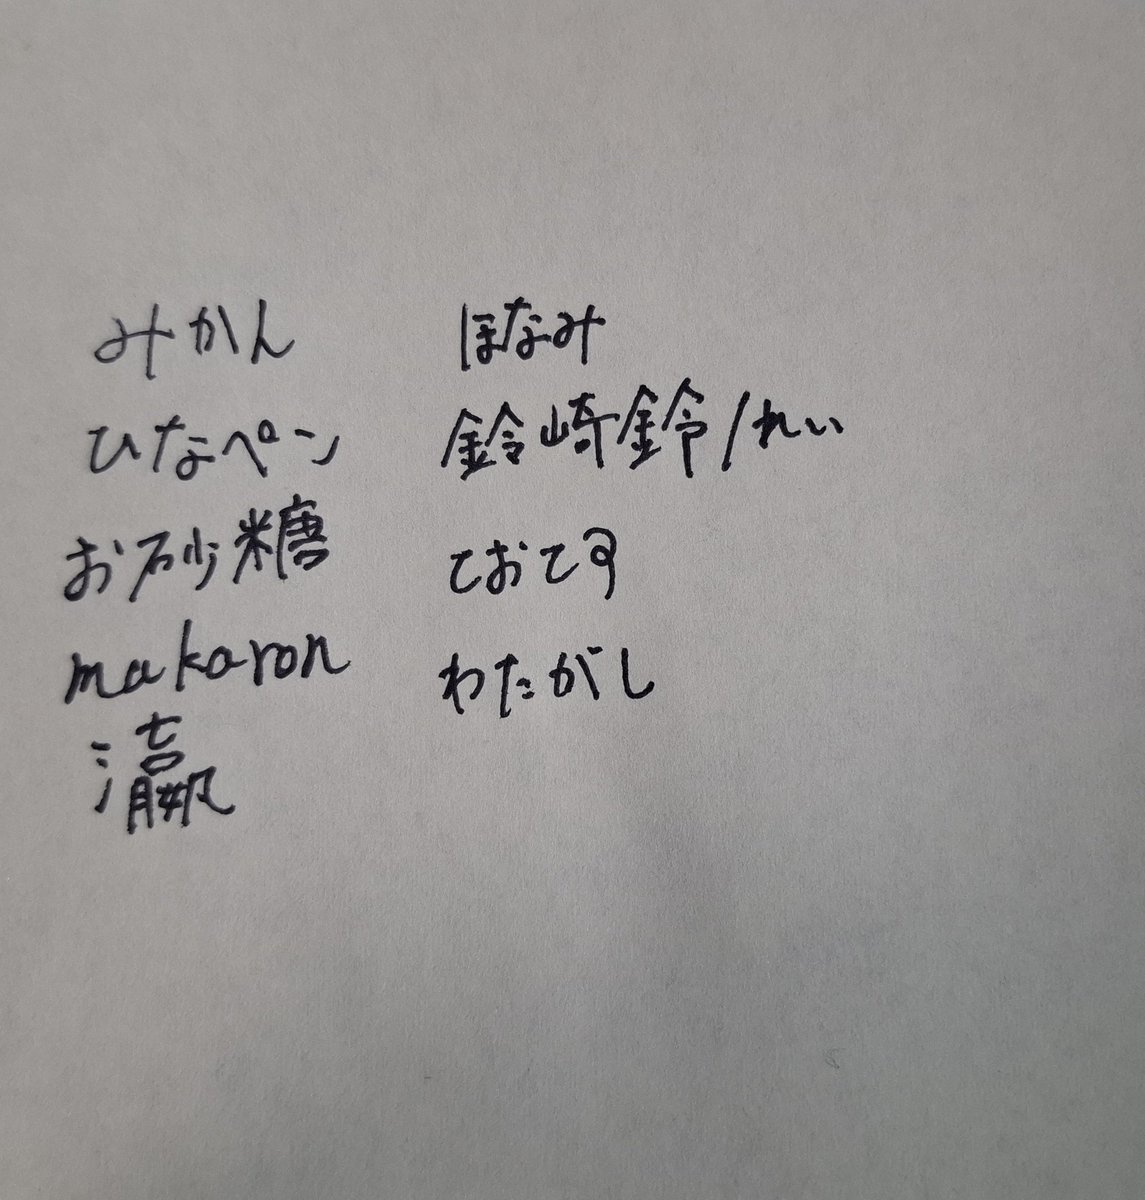 みかん
ひなペン
お砂糖
makaron
瀛
ほなみ
鈴崎鈴/れい
ておてす
わたがし